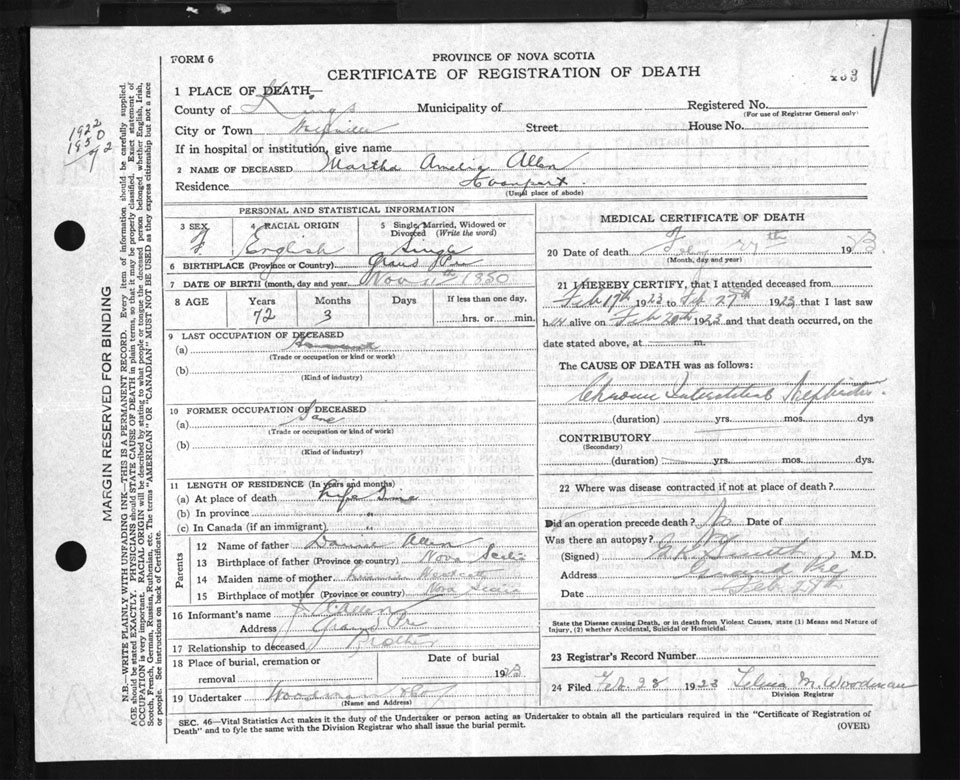 FORM 6
PROVINCE OF NOVA SCOTIA
CERTIFICATE OF REGISTRATION OF DEATH
1 PLACE OF DEATH—
County of Kings Municipality of Registered No.
(For use of Registrar General only)
City or Town Street House No.
If in hospital or institution, give name
2 NAME OF DECEASED Martha Amelia Allen
Residence
(Usual place of abode)
PERSONAL AND STATISTICAL INFORMATION
3 SEX F.
4 RACIAL ORIGIN English
5 Single, Married, Widowed or Divorced (Write the word) Single
6 BIRTHPLACE (Province or Country) Grand Pre
7 DATE OF BIRTH (month, day and year) Nov 11th 1850
8 AGE Years Months Days If less than one day,
72 3 hrs. or min.
9 LAST OCCUPATION OF DECEASED
(a)
(Trade or occupation or kind or work)
(b)
(Kind of industry)
10 FORMER OCCUPATION OF DECEASED
(a)
(Trade or occupation or kind of work)
(b)
(Kind of industry)
11 LENGTH OF RESIDENCE (In years and months)
(a) At place of death Life Time
(b) In province "
(c) In Canada (if an immigrant) "
Parents
12 Name of father Allen
13 Birthplace of father (Province or country) Nova Scotia
14 Maiden name of mother
15 Birthplace of mother (Province or country) Nova Scotia
16 Informant's name Allen
Address Grand Pre
17 Relationship to deceased Brother
18 Place of burial, cremation or removal
Date of burial
1923
19 Undertaker Woodman
(Name and Address)
MEDICAL CERTIFICATE OF DEATH
20 Date of death Feby 27th 1923
(Month, day and year)
21 I HEREBY CERTIFY, that I attended deceased from
Feb 19th 1923 to Feb 27th 1923 that I last saw
h er alive on Feb 20th 1923 and that death occurred, on
date stated above, at m.
The CAUSE OF DEATH was as follows:
Chronic Interstitial Nephritis.
(duration) yrs. mos. dys
CONTRIBUTORY
(Secondary)
(duration) yrs. mos. dys.
22 Where was disease contracted if not at place of death?
Did an operation precede death? No Date of
Was there an autopsy? No
(Signed) M.D.
Address Grand Pre
Date Feb. 28
State the Disease causing Death, or in death from Violent Causes, state (1) Means and Nature of
Injury, (2) whether Accidental, Suicidal or Homicidal.
23 Registrar's Record Number
24 Filed Feb 28 1923 M. Woodman
Division Registrar
SEC. 46—Vital Statistics Act makes it the duty of the Undertaker or person acting as Undertaker to obtain all the particulars required in the "Certificate of Registration of
Death" and to fyle the same with the Division Registrar who shall issue the burial permit.
(OVER)
MARGIN RESERVED FOR BINDING
N.B.—WRITE PLAINLY WITH UNFADING INK—THIS IS A PERMANENT RECORD. Every item of information should be carefully supplied.
AGE should be stated EXACTLY. PHYSICIANS should STATE CAUSE OF DEATH in plain terms, so that it may be properly classified. Exact statement of
OCCUPATION is very important. RACIAL ORIGIN will be described by stating to what people or tongue the deceased person belonged, whether English, Irish,
Scotch, French, German, Russian, Ruthenian, etc. The terms "AMERICAN" OR "CANADIAN" MUST NOT BE USED as they express citizenship but not a race
or people. See instructions on back of Certificate.
1922
1850
72